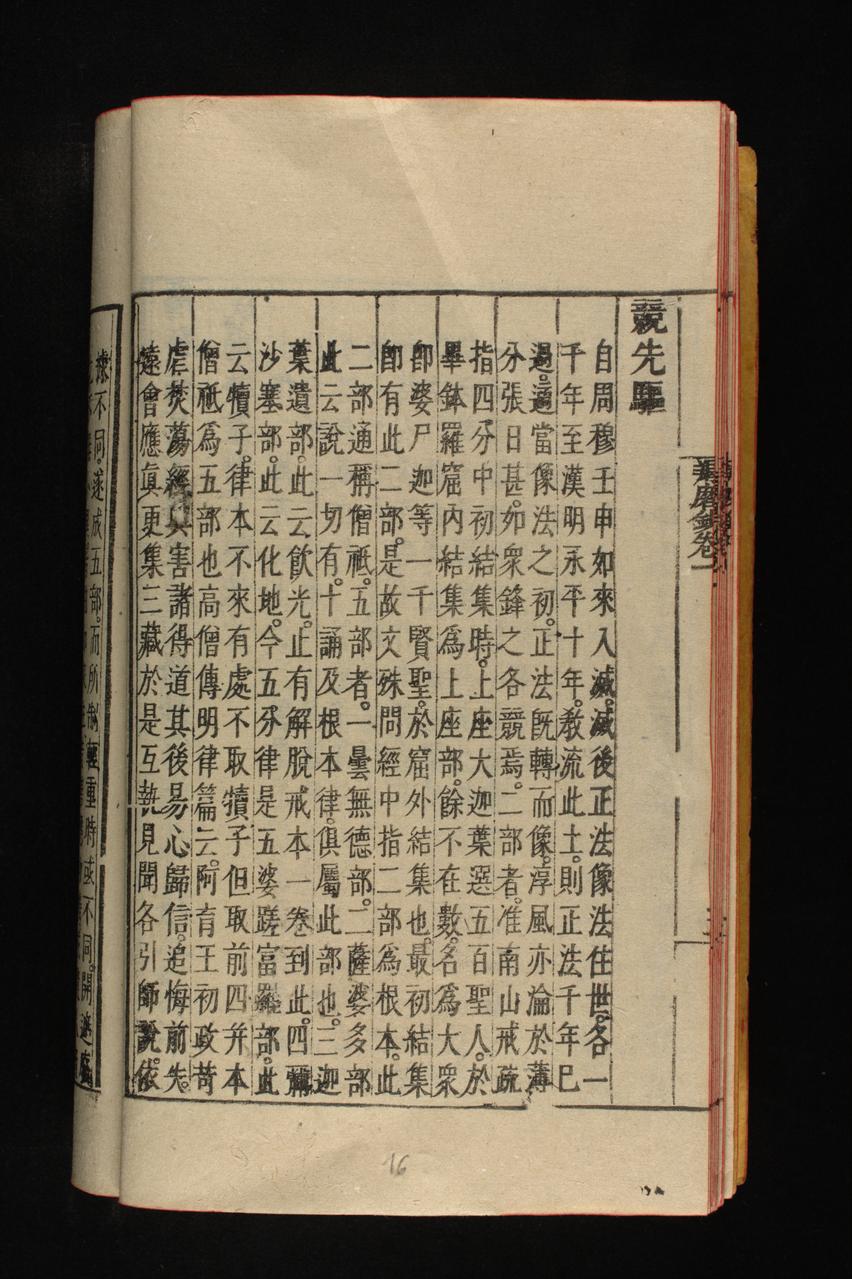 競先驅
自周穆壬申如來入滅。滅後正法像法住世。各一
千年至漢明永平十年。教流此土。則正法千年巳
過。適當像法之初。正法旣轉而像。淳風亦淪於薄
分張日甚。如衆鋒之各競焉。二部者。准南山戒疏
指四分中初結集時。上座大迦葉選五百聖人。於
畢鉢羅窟內結集爲上座部。餘不在數。名爲大衆
卽婆尸迦等一千賢聖。於窟外結集也。最初結集
卽有此二部。是故文殊問經中指二部爲根本。此
二部通稱僧祇。五部者。一曇無德部。二薩婆多部
此云說一切有。十誦及根本律。俱屬此部也。三迦
葉遺部。此云飮光。止有解脫戒本一卷到此。四彌
沙塞部。此云化地。今五分律是五婆蹉富羅部。此
云犢子。律本不來有處不取犢子但取前四幷本
僧祇爲五部也高僧傳明律篇云。阿育王初政苛
虐焚蕩經具害諸得道其後易心歸信。追悔前失。
遠會應眞更集三藏於是互執見聞各引師說。依
據不同。遂成五部。而所制輕重時或不同。開遮